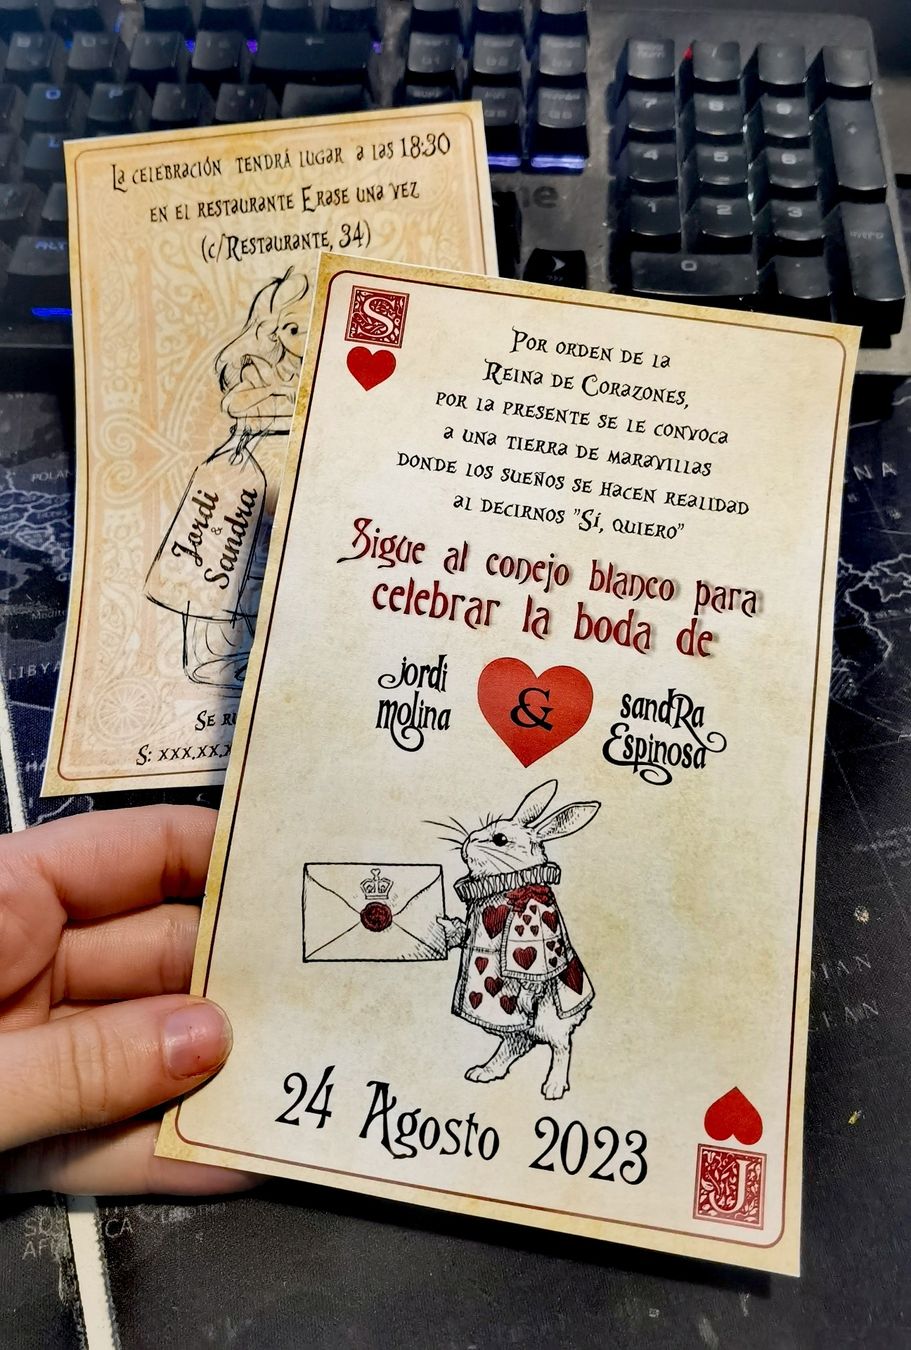 La celebración tendrá lugar a las 18:30
en el restaurante Erase una vez
(c/Restaurante, 34)
Jordi
&
Sandra
Se
S: xxx.xx.x
S
Por orden de la
Reina de Corazones,
por la presente se le convoca
a una tierra de maravillas
donde los sueños se hacen realidad
al decirnos "Sí, quiero"
Sigue al conejo blanco para
celebrar la boda de
jordi
molina
&
sandRa
Espinosa
24 Agosto 2023
J
7 8 9
4 5 6
1 2 3
0
ALT
LIBYA